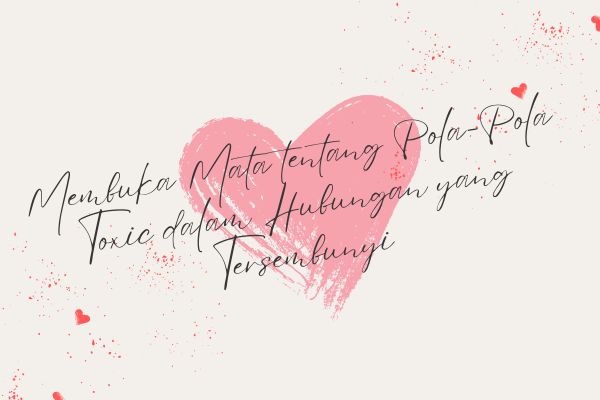 Membuka Mata tentang Pola-Pola
Toxic dalam Hubungan yang
Tersembunyi